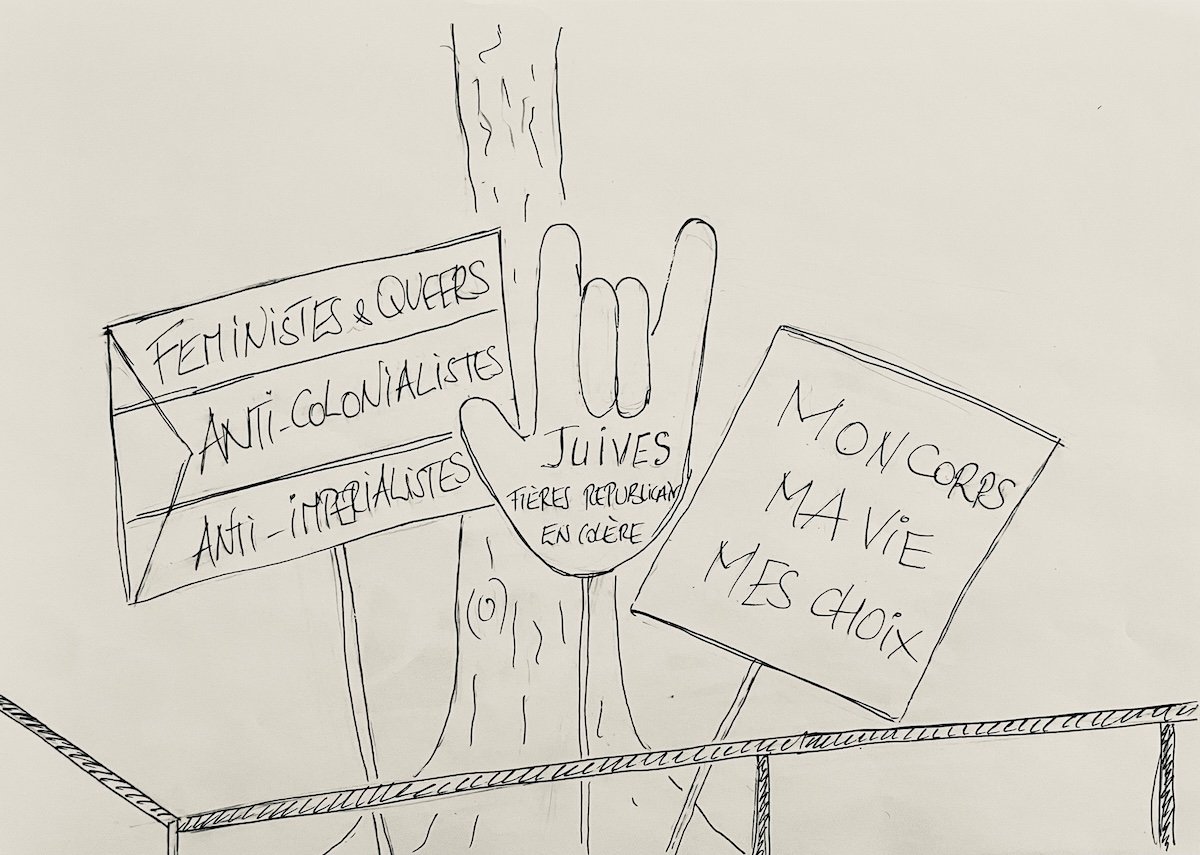 FEMINISTES & QUEERS
ANTI-COLONIALISTES
ANTI-IMPERIALISTES
JUIVES
FIÈRES REPUBLICAIN
EN COLÈRE
MON CORPS
MA VIE
MES CHOIX